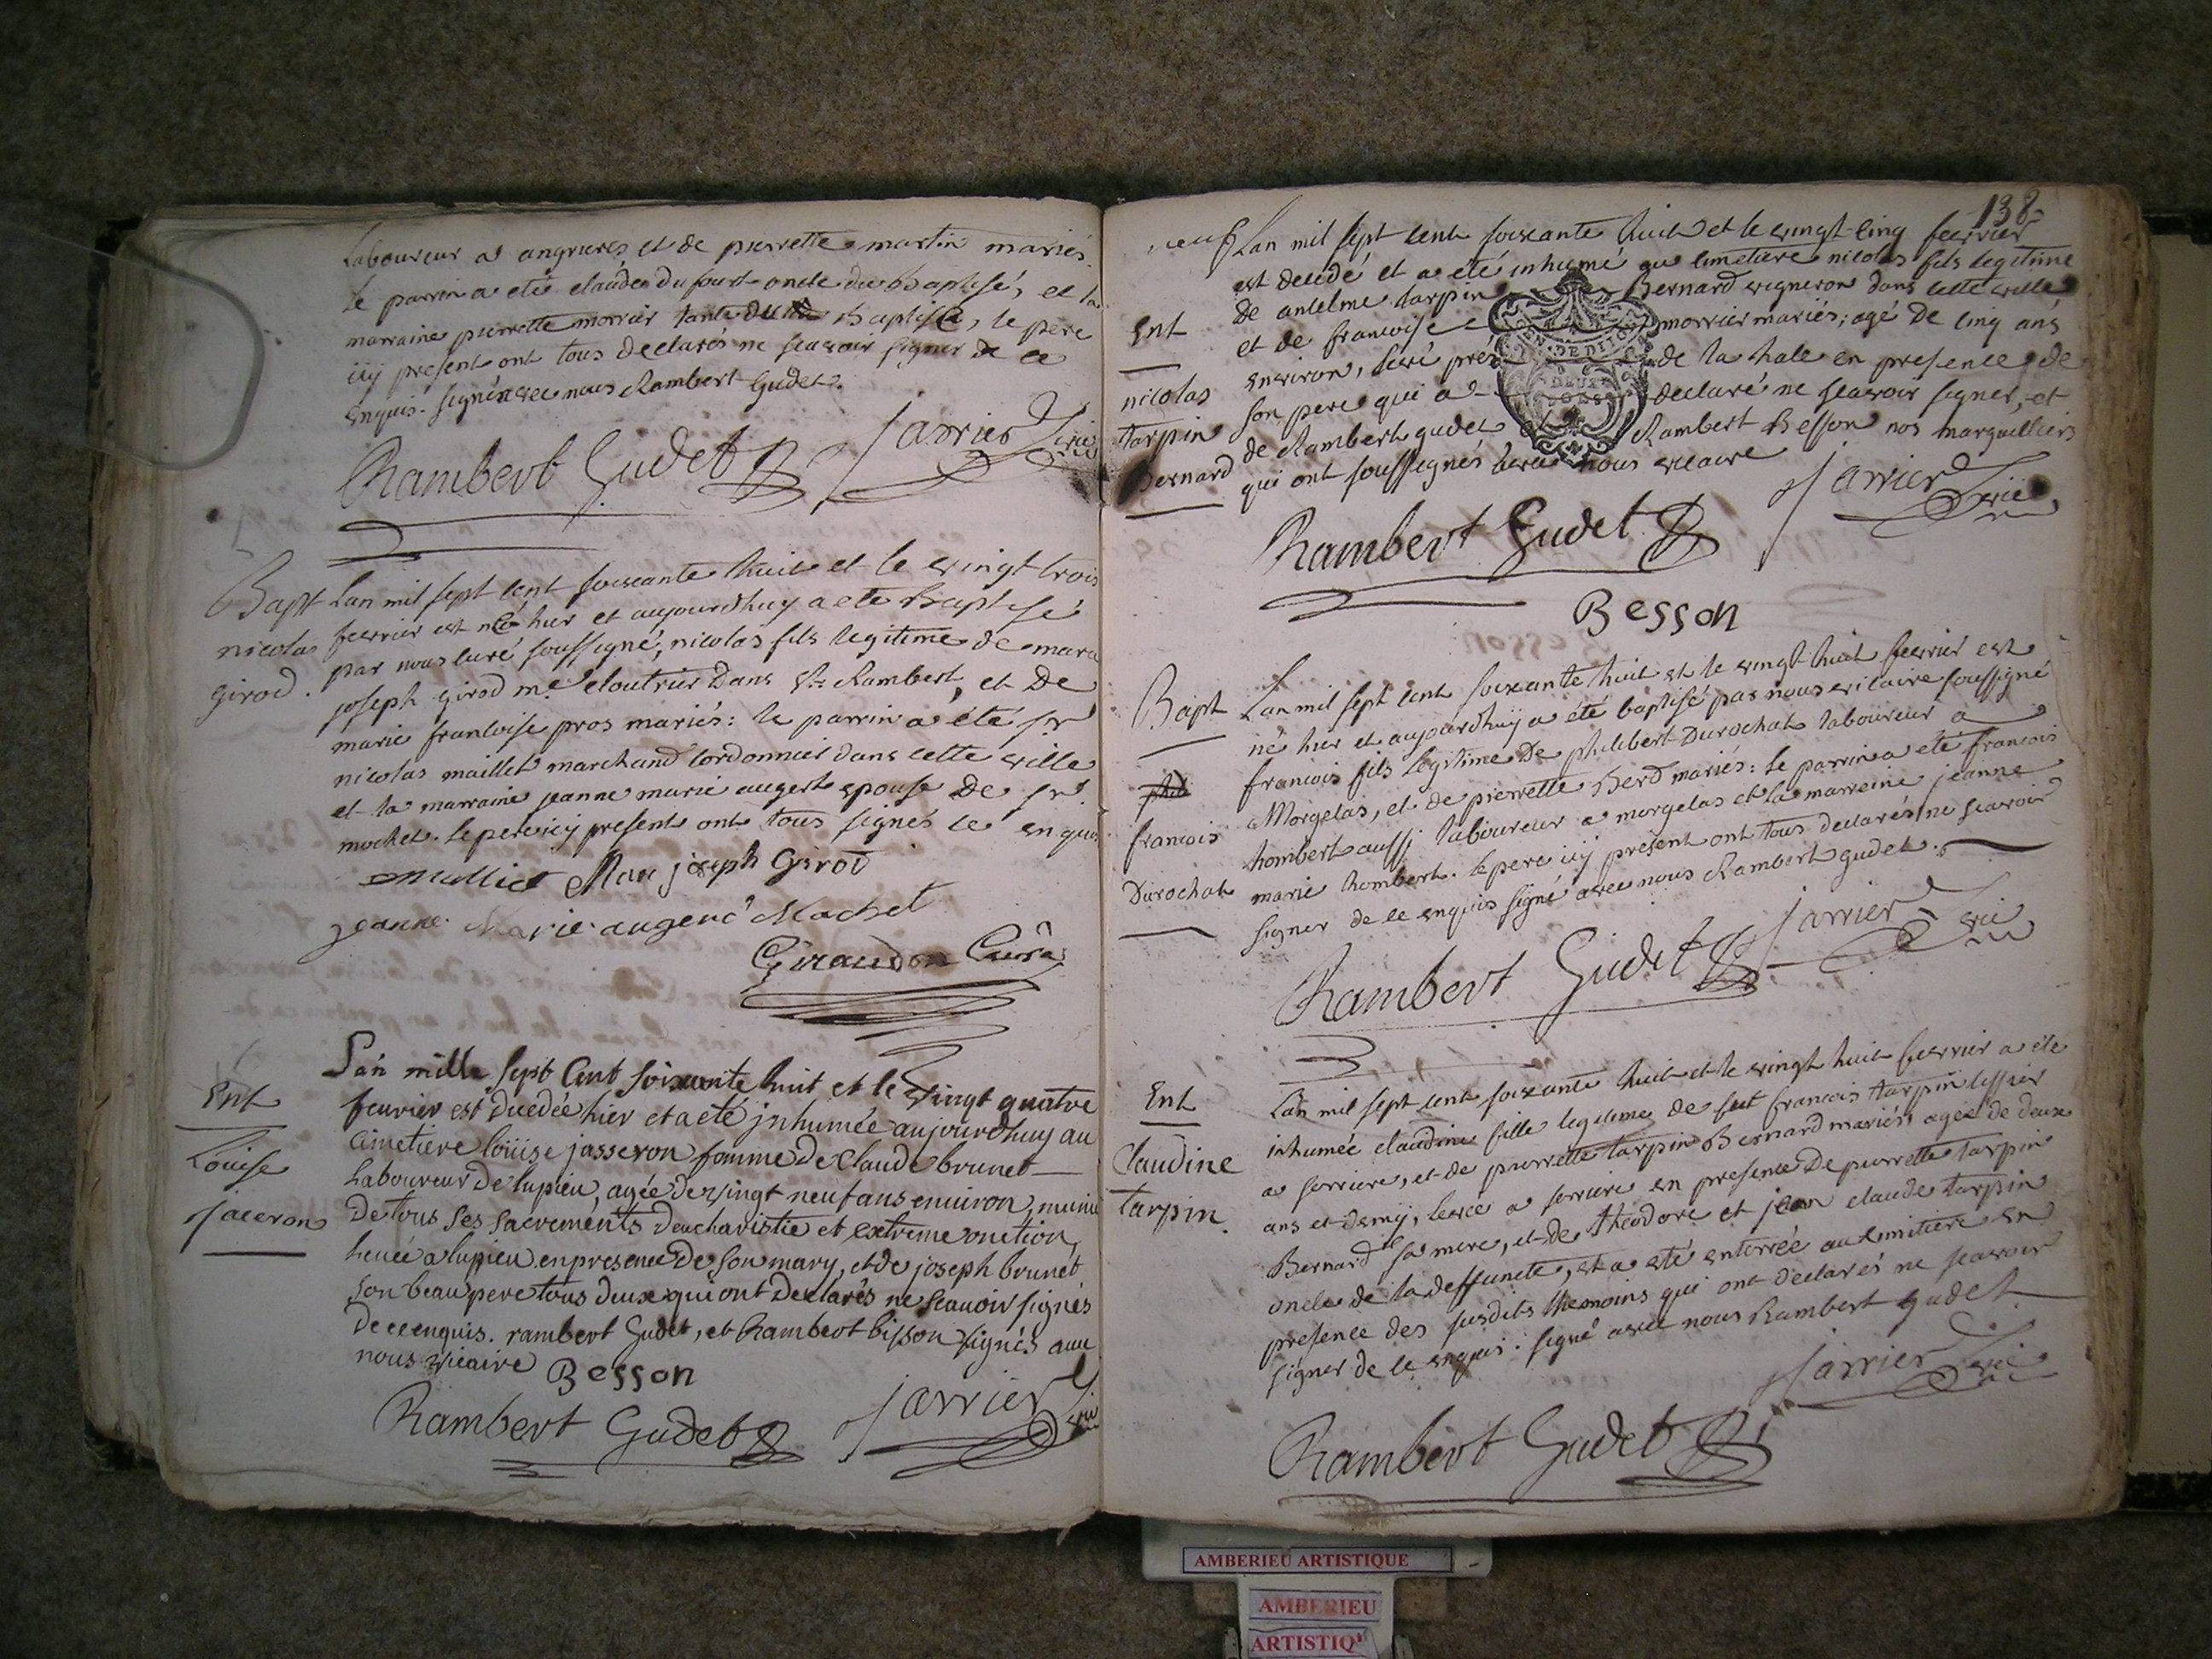 Laboureur a angrieres et de pierrette martin mariés.
le parrin a eté claude dufour oncle du Baptisé, et la
marraine pierrette morrier tante du Baptisé, le pere
icy present ont tous declarés ne scavoir signer de ce
enquis. signé avec nous Rambert Gudet.
Rambert Gudet Jarrier vic
Bapt
nicolas
girod.
Lan mil sept cent soixante huit et le vingt trois
fevrier est né hier et aujourdhuy a eté Baptisé
par nous curé soussigné, nicolas fils legitime de marc
joseph girod me cloutrier Dans St Rambert, et De
marie francoise pros mariés: le parrin a été sr
nicolas maillet marchand Cordonnier dans cette ville
et la marraine jeanne marie augert epouse De sr
mochet. le pere icy present ont tous signés ce enquis
Malliet Marc joseph Girod
jeanne Marie augerd Mochet
Giraudon Curé
Ent
Louise
jaceron
L'an mille sept Cent soixante huit et le vingt quatre
fevrier est decedée hier et a eté jnhumée aujourdhuy au
Cimetiere loüise jasseron femme De Claude brunet
Laboureur De lupieu, agée de vingt neuf ans environ, munie
De tous ses sacrements Deucharistie et extreme onction,
levée a lupieu en presence De son mary, et de joseph brunet
son beau pere tous deux qui ont Declarés ne scauoir signés
De ce enquis. rambert Gudet, et Rambert bisson signés avec
nous vicaire Besson
Rambert Gudet Jarrier vic
138
neuf
Ent
nicolas
tarpin
Bernard
Lan mil sept cent soixante huit et le vingt cinq fevrier
est decedé et a été inhumé au cimetiere nicolas fils legitime
De antelme tarpin Bernard vigneron dans cette ville
et de francoise morrier mariés; agé De cinq ans
environ, levé prés de la hale en presence de
son pere qui a declaré ne scavoir signer, et
de Rambert gudet et Rambert Besson nos marguilliers
qui ont soussignés avec nous vicaire
Rambert Gudet Jarrier vic
Besson
Bapt
francois
Durochat
Lan mil sept cent soixante huit et le vingt huit fevrier est
né hier et aujourdhuy a été baptisé par nous vicaire soussigné
francois fils legitime De philibert Durochat laboureur a
Morgelas, et de pierrette Berd mariés: le parrin a été francois
hombert aussi laboureur a morgelas et la marreine jeanne
marie hombert. le pere icy present ont tous declarés ne scavoir
signer de ce enquis signé avec nous Rambert gudet.
Rambert Gudet Jarrier vic
Ent
Claudine
tarpin
Lan mil sept cent soixante huit et le vingt huit fevrier a été
inhumée claudine fille legitime de feut francois tarpin tissier
a serriere, et de pierrette tarpin Bernard mariés, agée de deux
ans et demy, levée a serriere en presence De pierrette tarpin
Bernard sa mere, et de theodore et jean claude tarpin
oncle de la deffuncte, et a eté enterrée au cimitiere en
presence des susdits themoins qui ont declarés ne scavoir
signer de ce enquis. signé avec nous Rambert gudet
Jarrier vic
Rambert Gudet
AMBERIEU ARTISTIQUE
AMBERIEU
ARTISTIQ